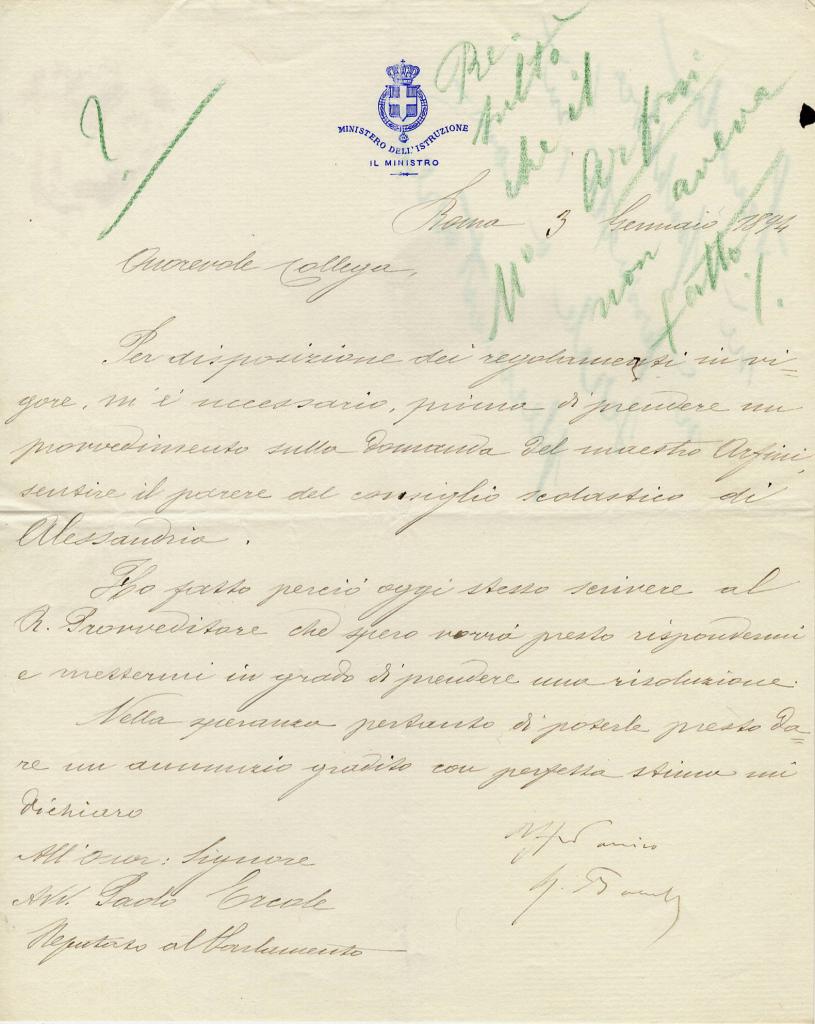 ?
Ri-
sulta
che il
Mo Arfini
non aveva
fatto
MINISTERO DELL'ISTRUZIONE
IL MINISTRO
Roma 3 Gennaio 1894
Onorevole Collega,
Per disposizione dei regolamenti in vi=
gore, m'è necessario, prima di prendere un
provvedimento sulla domanda del maestro Arfini,
sentire il parere del consiglio scolastico di
Alessandria.
Ho fatto perciò oggi stesso scrivere al
R. Provveditore che spero vorrà presto rispondermi
e mettermi in grado di prendere una risoluzione.
Nella speranza pertanto di poterle presto da=
re un annunzio gradito con perfetta stima mi
dichiaro
All'onor: Signore
Avv. Paolo Ercole
Deputato al Parlamento